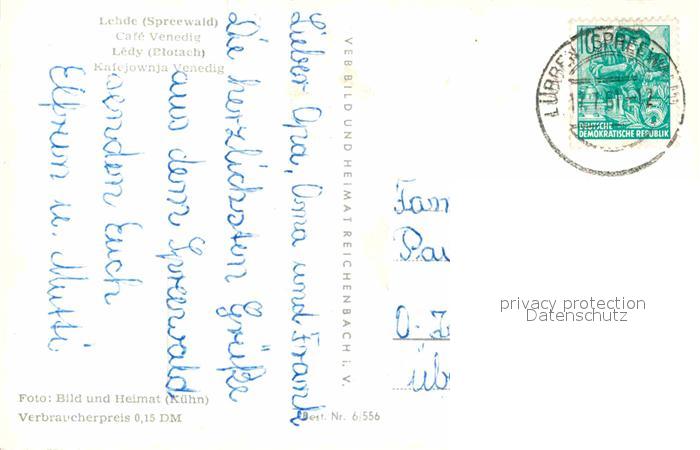 Lehde (Spreewald)
Café Venedig
Lědy (Błotach)
Kafejownja Venedig
Lieber Opa, Oma und Frank
Die herzlichsten Grüße
aus dem Spreewald
senden Euch
Elfrun u. Mutti
VEB BILD UND HEIMAT REICHENBACH i. V.
Foto: Bild und Heimat (Kühn)
Verbraucherpreis 0,15 DM
Best. Nr. 6/556
10
DEUTSCHE
DEMOKRATISCHE REPUBLIK
LÜBBEN (SPREEWALD)
Fam
Pau
O-Z
üb
privacy protection
Datenschutz